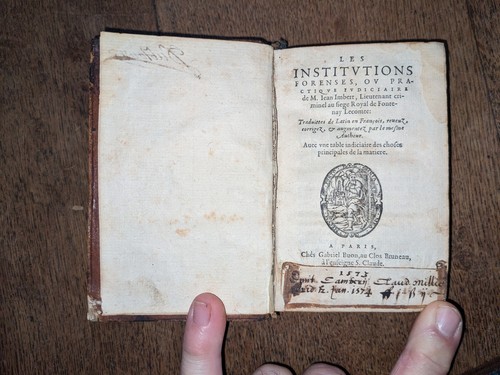 LES
INSTITVTIONS
FORENSES, OV PRA-
CTIQVE IVDICIAIRE
de M. Iean Imbert, Lieutenant cri-
minel au siege Royal de Fonte-
nay Lecomte:
Traduittes de Latin en François, reueuz,
corrigez, & augmentez par le mesme
Autheur.
Auec vne table iudiciaire des choses
principales de la matiere.
A PARIS,
Chés Gabriel Buon, au Clos Bruneau,
à l'enseigne S. Claude.
1573
Claud Millie
Jan. 1574